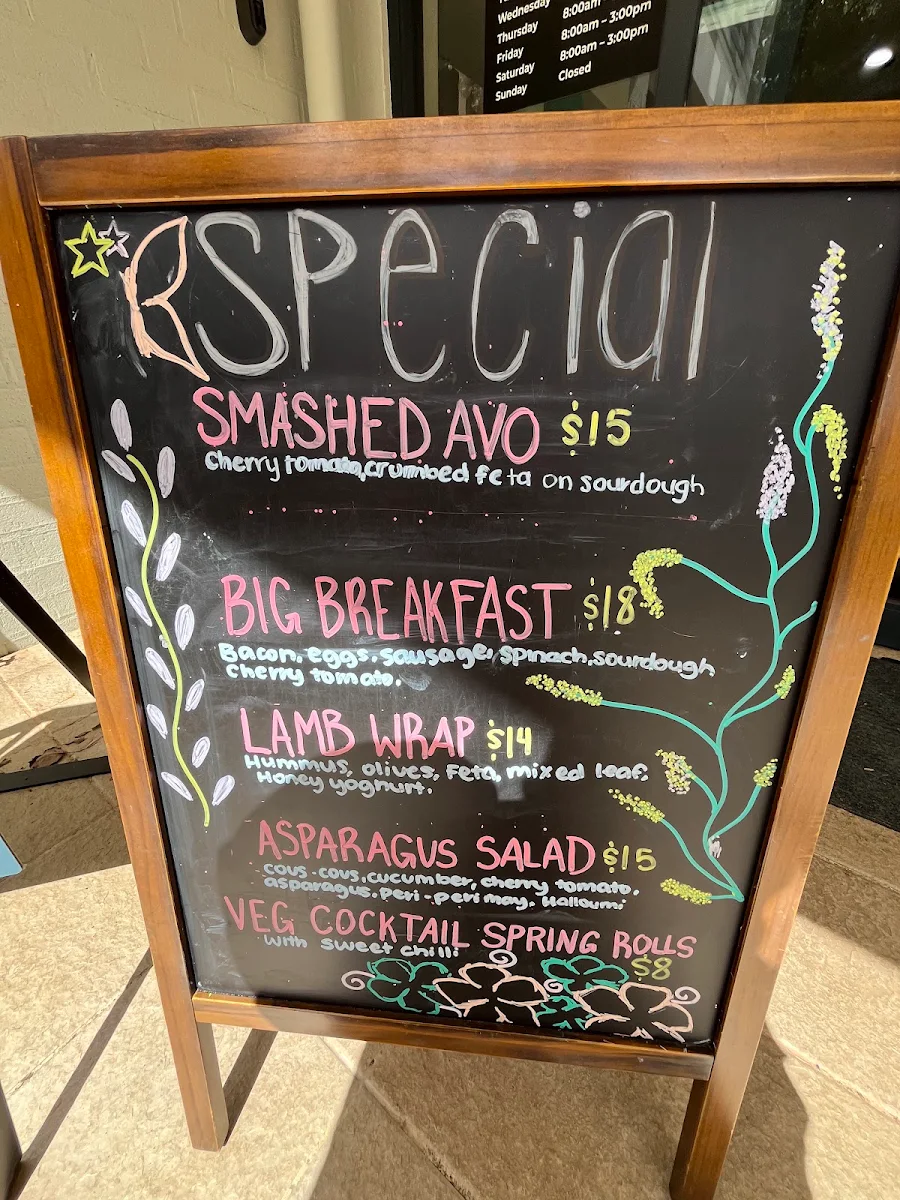 Wednesday 8:00am
Thursday 8:00am – 3:00pm
Friday 8:00am – 3:00pm
Saturday Closed
Sunday
Special
SMASHED AVO $15
Cherry tomato, crumbed feta on sourdough
BIG BREAKFAST $18
Bacon, eggs, sausage, spinach, sourdough
cherry tomato.
LAMB WRAP $14
Hummus, olives, Feta, mixed leaf,
Honey yoghurt.
ASPARAGUS SALAD $15
cous-cous, cucumber, cherry tomato,
asparagus, peri-peri may, Halloumi
VEG COCKTAIL SPRING ROLLS
with sweet chilli $8